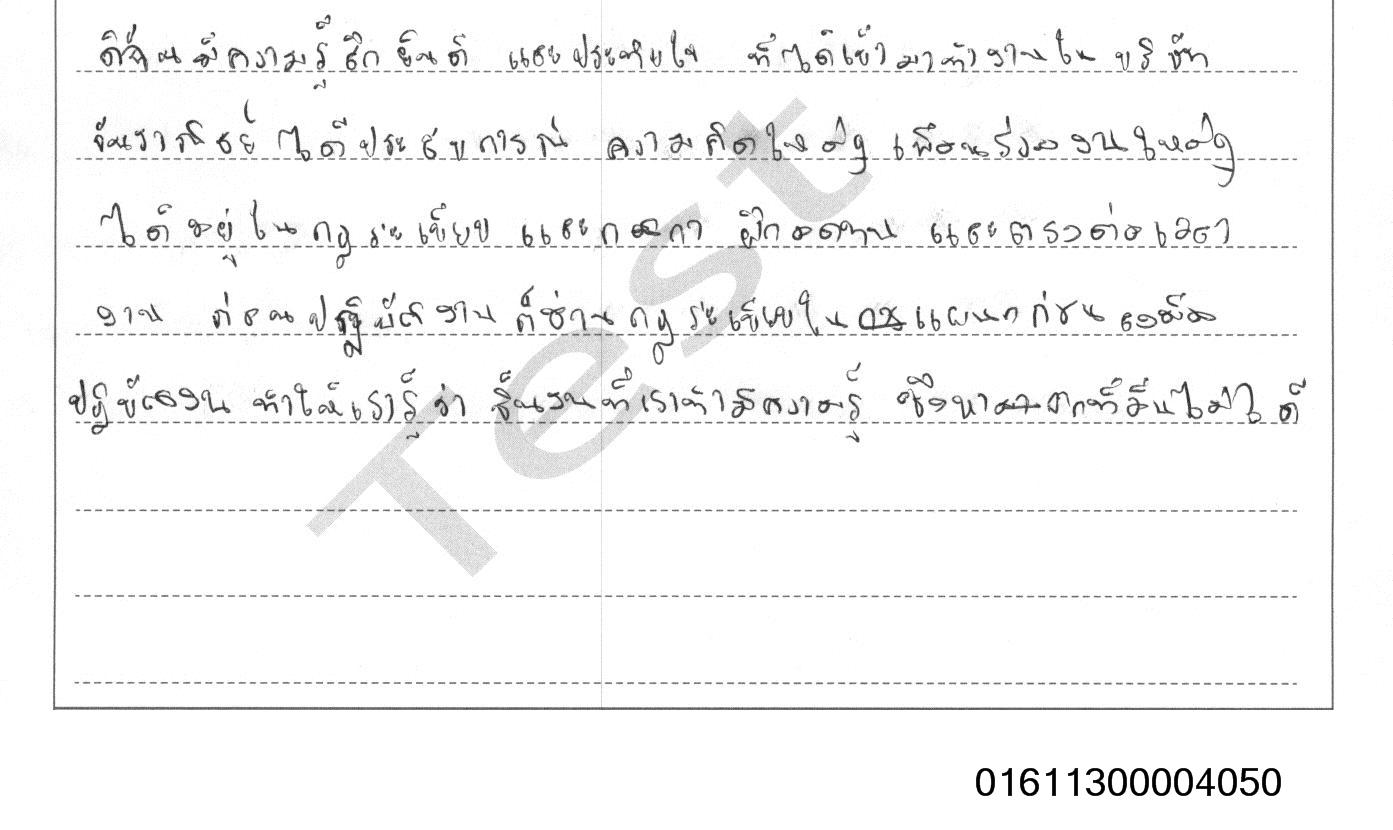 ดิฉันมีความรู้สึกยินดี และประทับใจ ที่ได้เข้ามาทำงานในบริษัท
ได้ประสบการณ์ ความคิดใหม่ๆ เพื่อนร่วมงานใหม่ๆ
ได้อยู่ในกฎระเบียบ และกติกา ฝึกอดทน และตรงต่อเวลา
งาน ก่อนปฏิบัติงาน ก็อ่านกฎระเบียบในแผนกก่อนลงมือ
ปฏิบัติงาน ทำให้เรารู้ว่า ชิ้นงานที่เราทำมีความรู้ ซึ่งหาจากที่อื่นไม่ได้
Test
01611300004050